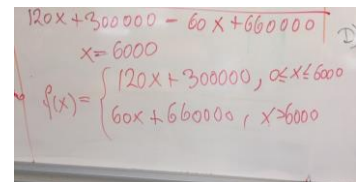 120x + 300000 - 60x + 660000
x = 6000
f(x) = { 120x + 300000, 0≤x≤6000
60x + 660000, x>6000